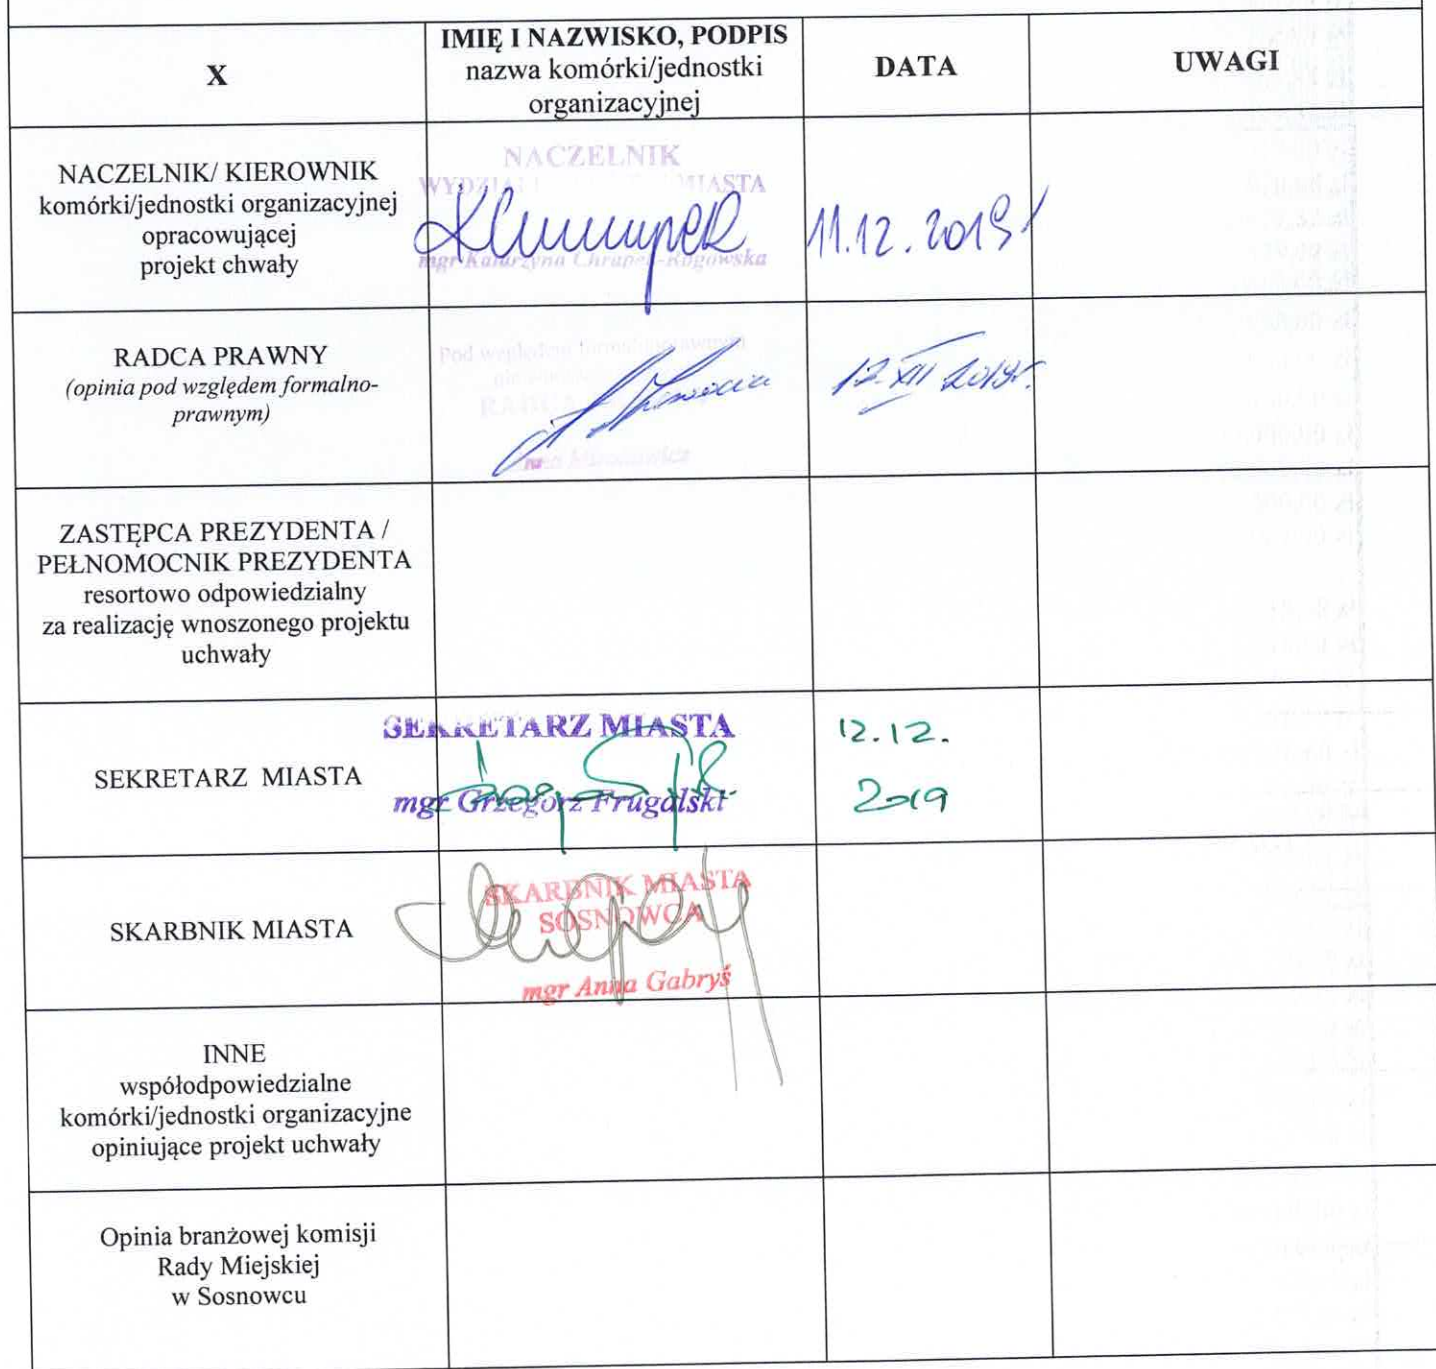 X
IMIĘ I NAZWISKO, PODPIS
nazwa komórki/jednostki
organizacyjnej
DATA
UWAGI
NACZELNIK/ KIEROWNIK
komórki/jednostki organizacyjnej
opracowującej
projekt chwały
NACZELNIK
MIASTA
mgr Katarzyna Chrapek-Rogowska
11.12.2019r
RADCA PRAWNY
(opinia pod względem formalno-
prawnym)
Pod względem formalnoprawnym
RADCA
12.XII 2019r.
ZASTĘPCA PREZYDENTA /
PEŁNOMOCNIK PREZYDENTA
resortowo odpowiedzialny
za realizację wnoszonego projektu
uchwały
SEKRETARZ MIASTA
SEKRETARZ MIASTA
mgr Grzegorz Frugalski
12.12.
2019
SKARBNIK MIASTA
SKARBNIK MIASTA
SOSNOWCA
mgr Anna Gabryś
INNE
współodpowiedzialne
komórki/jednostki organizacyjne
opiniujące projekt uchwały
Opinia branżowej komisji
Rady Miejskiej
w Sosnowcu